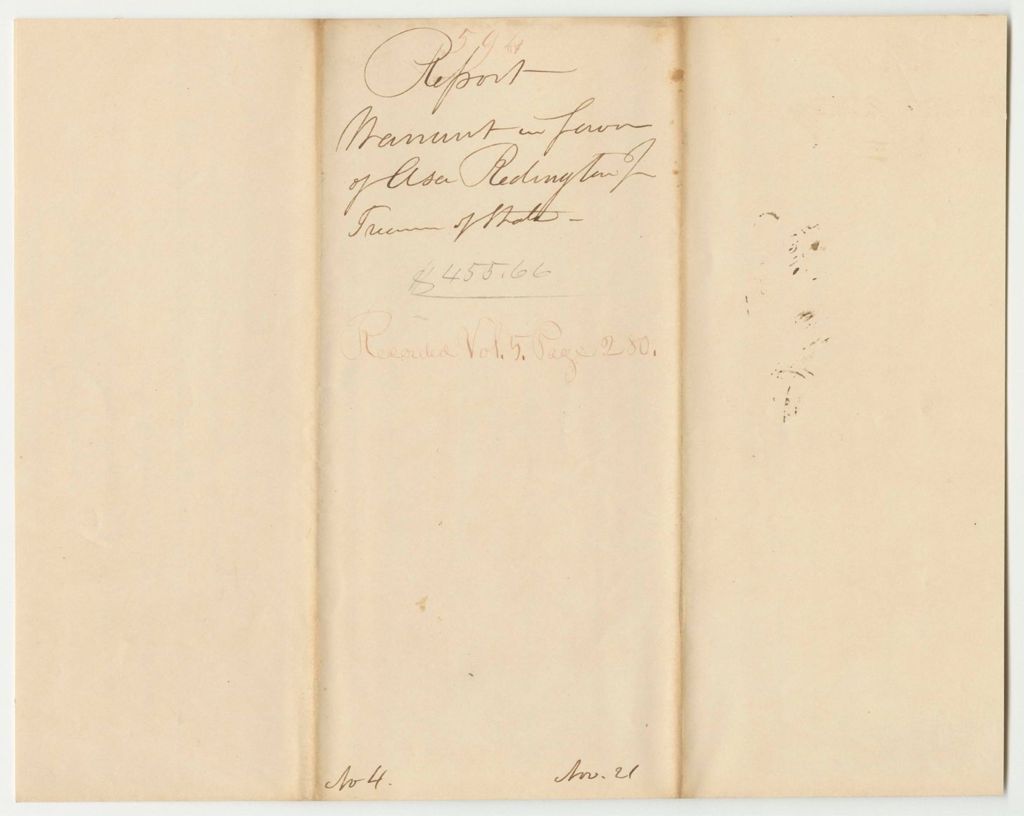 594
Report
Warrant in favor
of Asa Redington Jr
Treasurer of State -
$455.66
Recorded Vol. 5. Page 280.
No 4. Nov. 21